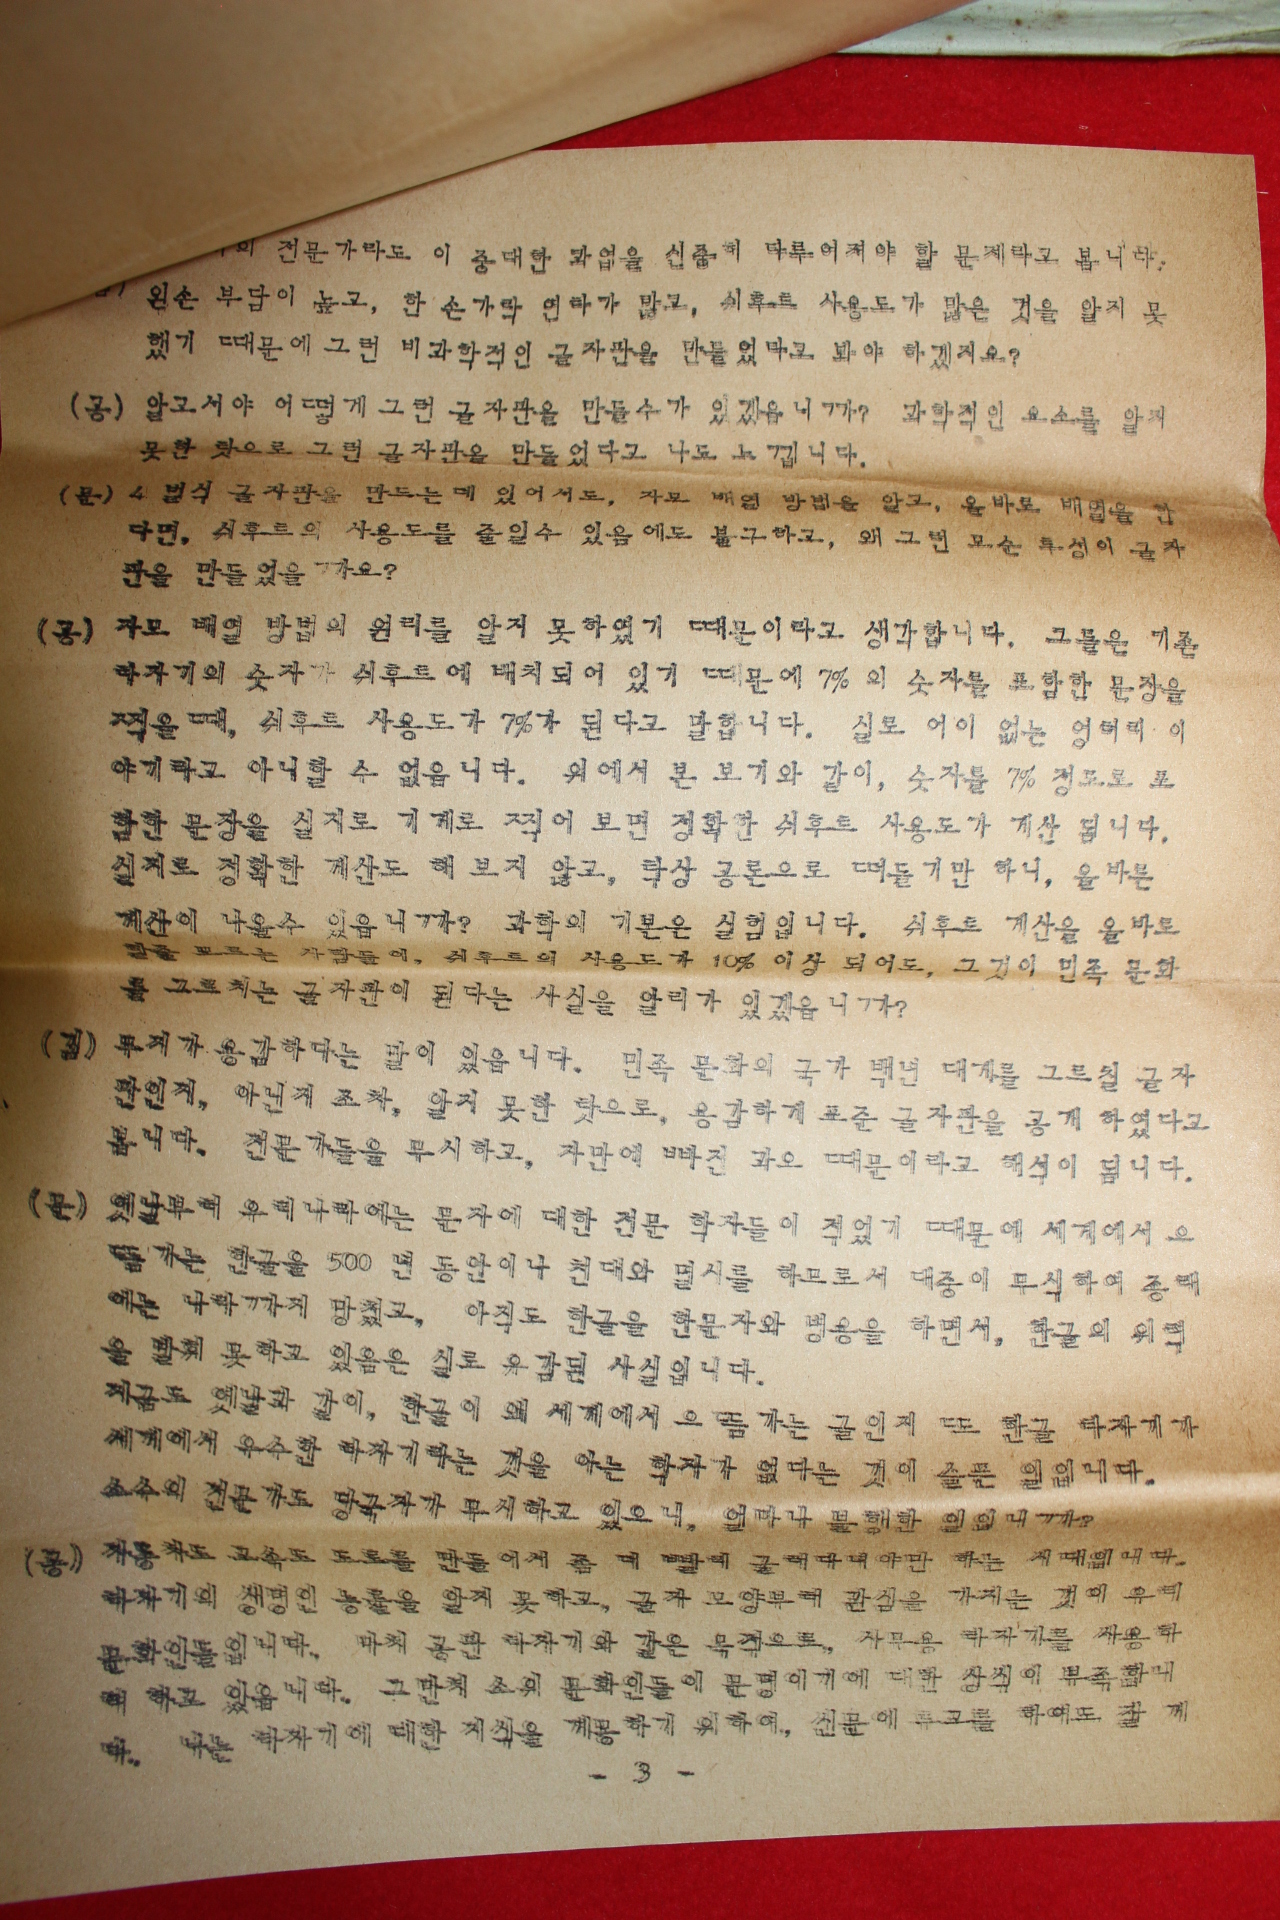 의 전문가라도 이 중대한 과업을 신중히 다루어져야 할 문제라고 봅니다.
왼손 부담이 높고, 한 손가락 연타가 많고, 쉬후트 사용도가 많은 것을 알지 못
했기 때문에 그런 비과학적인 글자판을 만들었다고 봐야 하겠지요?
(공) 알고서야 어떻게 그런 글자판을 만들수가 있겠읍니까? 과학적인 요소를 알지
못한 탓으로 그런 글자판을 만들었다고 나도 느낍니다.
(문) 4 벌식 글자판을 만드는데 있어서도, 자모 배열 방법을 알고, 올바로 배열을 한
다면, 쉬후트의 사용도를 줄일수 있음에도 불구하고, 왜 그런 모순 투성이 글자
판을 만들었을까요?
(공) 자모 배열 방법의 원리를 알지 못하였기 때문이라고 생각합니다. 그들은 기존
타자기의 숫자가 쉬후트에 배치되어 있기 때문에 7% 의 숫자를 포함한 문장을
찍을때, 쉬후트 사용도가 7%가 된다고 말합니다. 실로 어이 없는 엉터리 이
야기라고 아니할 수 없읍니다. 위에서 본 보기와 같이, 숫자를 7% 정도로 포
함한 문장을 실지로 기계로 찍어 보면 정확한 쉬후트 사용도가 계산 됩니다.
실지로 정확한 계산도 해 보지 않고, 탁상 공론으로 떠들기만 하니, 올바른
계산이 나올수 있읍니까? 과학의 기본은 실험입니다. 쉬후트 계산을 올바로
할줄 모르는 사람들이, 쉬후트의 사용도가 10% 이상 되어도, 그것이 민족 문화
를 그르치는 글자판이 된다는 사실을 알리가 있겠읍니까?
무지가 용감하다는 말이 있읍니다. 민족 문화의 국가 백년 대계를 그르칠 글자
판인지, 아닌지 조차, 알지 못한 탓으로, 용감하게 표준 글자판을 공개 하였다고
봅니다. 전문가들을 무시하고, 자만에 빠진 과오 때문이라고 해석이 됩니다.
(문) 옛날부터 우리나라에는 문자에 대한 전문 학자들이 적었기 때문에 세계에서 으
뜸가는 한글을 500 년 동안이나 천대와 멸시를 하므로서 대중이 무식하여 종래
에는 나라까지 망쳤고, 아직도 한글을 한문자와 병용을 하면서, 한글의 위력
을 펼치 못하고 있음은 실로 유감된 사실입니다.
지금도 옛날과 같이, 한글이 왜 세계에서 으뜸가는 글인지 또 한글 타자기가
세계에서 우수한 타자기라는 것을 아는 학자가 없다는 것이 슬픈 일입니다.
소수의 전문가도 당국자가 무시하고 있으니, 얼마나 불행한 일입니까?
(공) 자동차도 고속도 도로를 만들어서 좀 더 빨리 굴러다녀야만 하는 시대입니다.
타자기의 생명인 능률을 알지 못하고, 글자 모양부터 관심을 가지는 것이 우리
문화인들입니다. 마치 공판 타자기와 같은 목적으로, 사무용 타자기를 사용하
려 하고 있읍니다. 그만치 소위 문화인들이 문명이기에 대한 상식이 부족합니
다. 나는 타자기에 대한 지식을 계몽하기 위하여, 신문에 투고를 하여도 잘 게
- 3 -